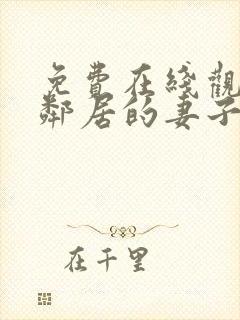 免費在綫觀
鄰居的妻子
在千里